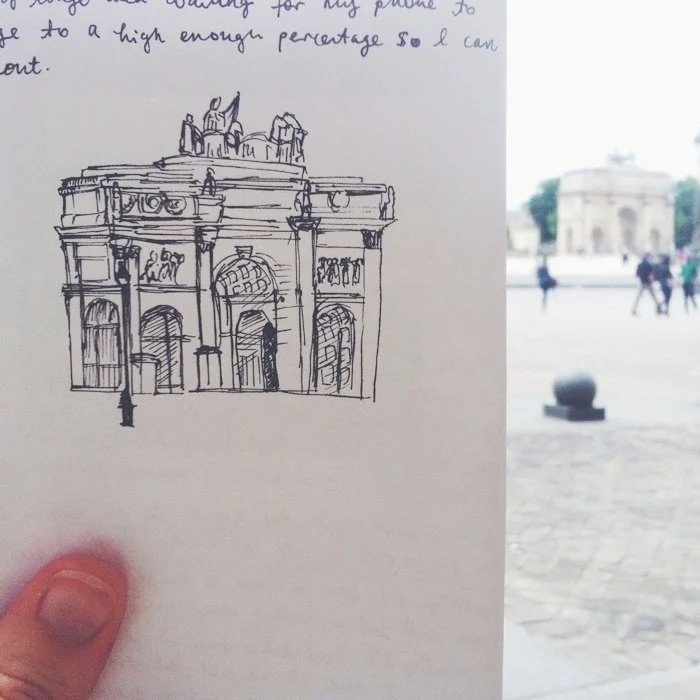 and waiting for my phone to
to a high enough percentage so I can
out.